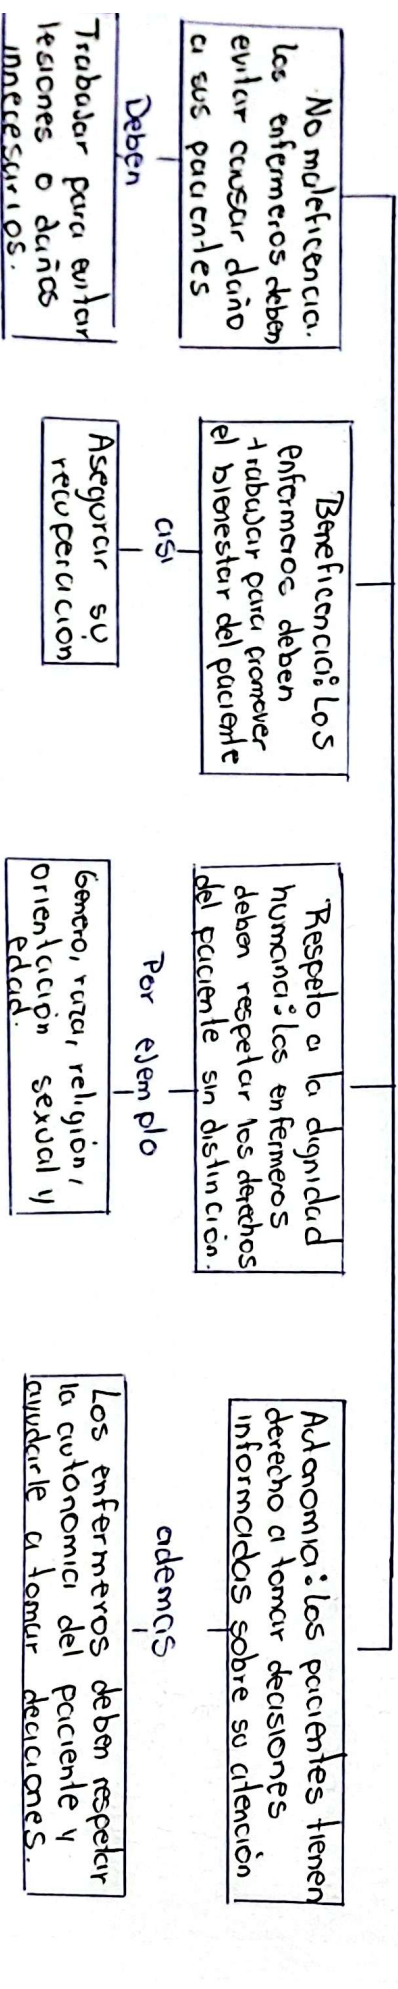 No maleficencia.
los enfermeros deben
evitar causar daño
a sus pacientes
Deben
Trabajar para evitar
lesiones o daños
innecesarios.
Beneficencia: Los
enfermeros deben
trabajar para promover
el bienestar del paciente
asi
Asegurar su
recuperación
Respeto a la dignidad
humana: los enfermeros
deben respetar los derechos
del paciente sin distinción.
Por ejemplo
Genero, raza, religión,
orientación sexual y
edad.
Autonomia: los pacientes tienen
derecho a tomar decisiones
informadas sobre su atención
además
Los enfermeros deben respetar
la autonomia del paciente y
ayudarle a tomar deciciones.